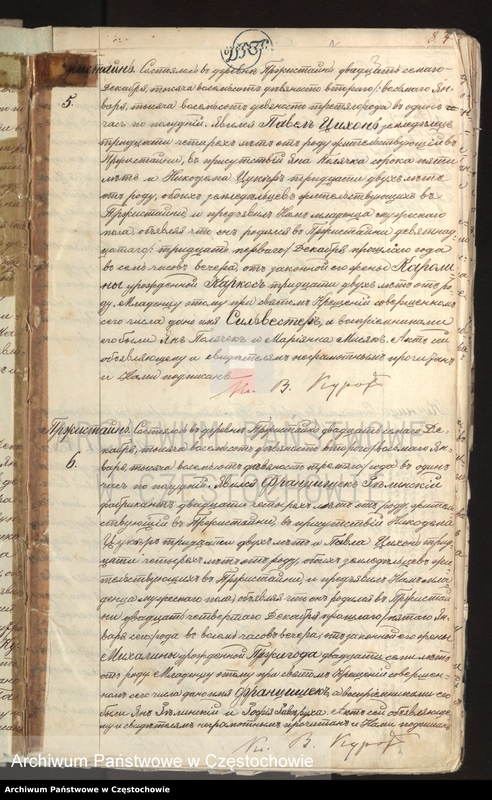 84
Пржистайнъ. Состоялось въ деревни Пржистайни двадцать седьмаго
5.
Декабря, тысяча восемьсотъ девяносто втораго / восьмаго Ян-
варя, тысяча восемьсотъ девяносто третяго года въ одинъ
часъ по полудни. Явился Павелъ Цихонъ земледѣлецъ
тридцати четырехъ лѣтъ отъ роду жительствующій въ
Пржистайни, въ присутствіи Яна сорока пяти
лѣтъ и Никодема Цукеръ тридцати двухъ лѣтъ
отъ роду, обоихъ земледѣльцевъ жительствующихъ въ
Пржистайни и предъявилъ Намъ младенца мужескаго
пола объявляя что онъ родился въ Пржистайни девятнад-
цатаго / тридцать перваго / Декабря прошлаго года
въ семь часовъ вечера, отъ законной его жены Кароли-
ны урожденной Каркосъ тридцати двухъ лѣтъ отъ ро-
ду. Младенцу этому при святомъ Крещеніи совершенномъ
сего числа дано имя Сильвестеръ, а воспріемниками
его были Янъ Полячекъ и Маріянна Мисякъ. Актъ сей
объявляющему и свидѣтелямъ неграмотнымъ прочитанъ
и Нами подписанъ
Кс. В. Куроѣ
Пржистайнъ. Состоялось въ деревни Пржистайни двадцать седьмаго Де-
6.
кабря, тысяча восемьсотъ девяносто втораго / восьмаго Ян-
варя, тысяча восемьсотъ девяносто третяго / года въ одинъ
часъ по полудни. Явился Францишекъ Зѣлинскій
фабрикантъ двадцати четырехъ лѣтъ отъ роду, житель-
ствующій въ Пржистайни, въ присутствіи Никодема
Цукеръ тридцати двухъ лѣтъ и Павла Цихонъ трид-
цати четырехъ лѣтъ отъ роду, обоихъ земледѣльцевъ жи-
тельствующихъ въ Пржистайни, и предъявилъ Намъ мла-
денца мужескаго пола, объявляя что онъ родился въ Пржистай-
ни двадцать четвертаго Декабря прошлаго / пятаго Ян-
варя сего года въ восемь часовъ вечера, отъ законной его жены
Михалины урожденной Пржигода двадцати семи лѣтъ
отъ роду. Младенцу этому при святомъ Крещеніи совершен-
номъ сего числа дано имя Францишекъ, а воспріемниками его
были Янъ Зѣлинскій и Зофія. Актъ сей объявляюще-
му и свидѣтелямъ неграмотнымъ прочитанъ и Нами подписанъ
Кс. В. Куроѣ
ARCHIWUM PAŃSTWOWE
W CZĘSTOCHOWIE
Archiwum Państwowe w Częstochowie
Archiwum Państwowe w Częstochowie